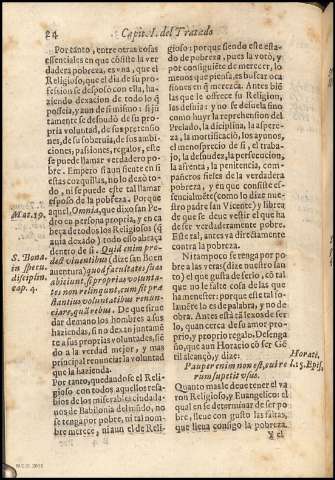 24
Capit. I. del Tratado
Por tanto, entre otras cosas
essenciales en que cõsiste la ver
dadera pobreza, es vna, que el
Religioso, el dia de su pro-
fession se desposseyò con ella, ha-
ziendo dexacion de todo lo q̃
posseia, y aun de si mismo: si jũ
tamente se desnudò de su pro-
pria voluntad, de sus pretensio
nes, de su soberuia, de sus ambi-
ciones, passiones, regalos, este
se puede llamar verdadero po-
bre. Empero si aun siente en si
estas cozquillas, no lo dexò to-
do, ni se puede este tal llamar
esposo de la Pobreza. Porque
aquel, Omnia, que dixo san Pe-
dro en persona propria, y en ca
beça de todos los Religiosos (q̃
auia dexado) todo esso abraça
dentro de si. Quid enim pro-
dest viuentibus (dize san Boen
auentura) quod facultates suas
abiiciunt, si proprias volunta-
tes non relinquunt, cum sit præ
stantius voluntatibus renun-
ciare, quã rebus. De que sirue
dar demano los hombres a sus
haziendas, si no dexan juntamẽ
te a sus proprias voluntades, siẽ
do a la verdad mejor, y mas
principal renunciar la voluntad
que la hazienda.
Por tanto, quedandose el Reli-
gioso con todos aquellos resa-
bios de los miserables ciudada-
nos de Babilonia del mũdo, no
se tenga por pobre, ni tal nom-
bre merece, ni aun el de Reli-
Mat. 19.
S. Bona.
in specu.
disciplin.
cap. 4.
gioso: porque siendo este esta-
do de pobreza, pues la votò, y
no consiguiẽte de merecer, lo
menos que piensa, es buscar oca
siones en q̃ merezca. Antes biẽ
las que le ofrece su Religion,
las desuia: y no se desuela sino
como huyr la reprehension del
Prelado, la diciplina, la aspere-
za, la mortificacion, los ayunos,
el menosprecio de si, el traba-
jo, la desnudez, la perseccucion,
la afrenta, la penitencia, com-
pañeros fieles de la verdadera
pobreza, y en que consiste es-
sencialmẽte (como lo dize nues
tro padre san Vicente) y librar
se de que se deuez vestir el que
ha de ser verdaderamente po-
bre. Este tal, antes va directamente
contra la pobreza.
Ni tampoco se tenga por po
bre a las veras (dize nuestro San
to) el que gusta de serlo, cõ tal
que no le falte cosa de las que
ha menester: porque este tal so-
lamente lo es de palabra, y no de
obra. Antes està tã lexos de ser
lo, quan cerca de su amor pro-
prio, y proprio regalo. Desenga
ño, que aun Horacio cõ ser Gẽ-
til alcançò, y dize:
Pauper enim non est, cui re
rum suppetit vsus.
Quanto mas le deue tener el va
ron Religioso, y Euangelico: el
qual en se determinar de ser po-
bre, lleue con gusto las faltas,
que lleua consigo la pobreza.
Horati.
l.1.5. Epis.
El